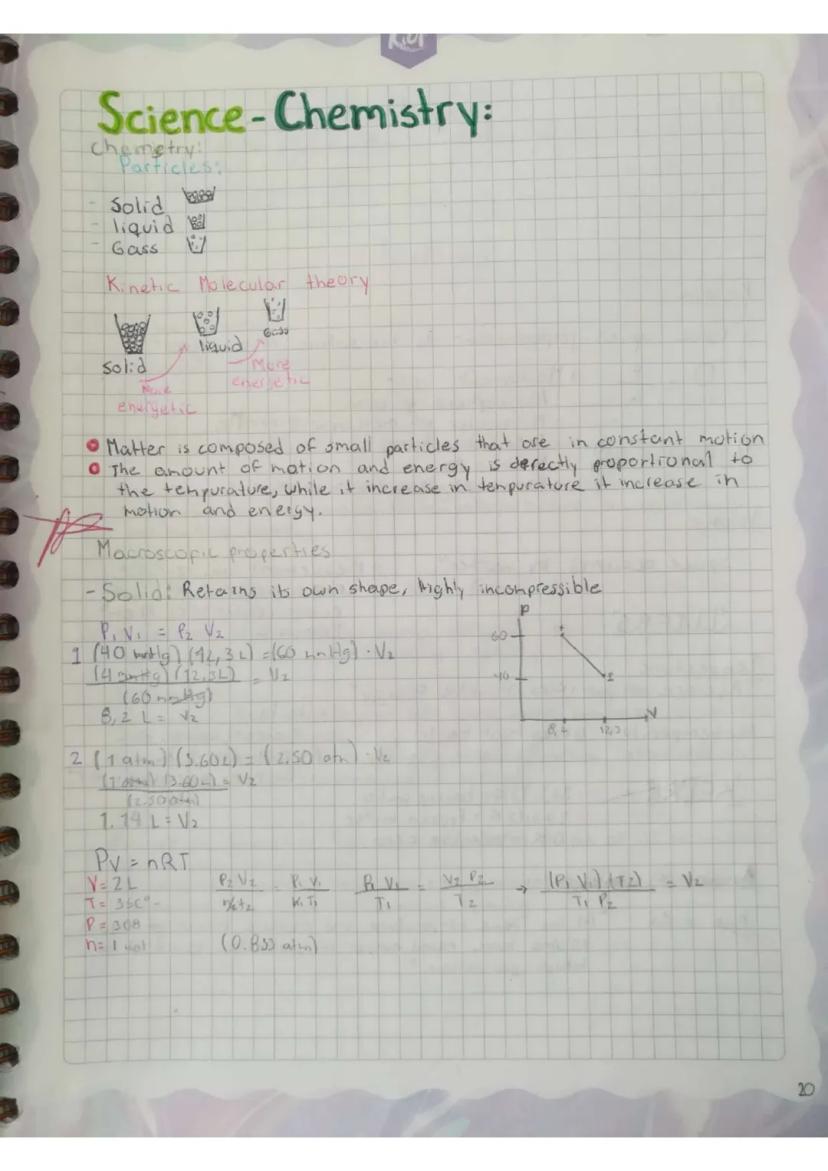 Science - Chemistry:
Chemetry:
Particles:
- Solid
- liquid
- Gass
Kinetic Molecular theory
Solid
liquid
Gass
More energetic
More energetic
Matter is composed of small particles that are in constant motion
The amount of motion and energy is derectly proportional to
the tempurature, while it increase in tempurature it increase in
motion and energy.
Macroscopic properties
- Solid: Retains its own shape, highly incompressible
P₁ V₁ = P₂ V₂
1 (40 mmHg) (12,3 L) = (60 mmHg) · V₂
(40 mmHg) (12,3L) = V₂
(60 mmHg)
8,2 L = V₂
P
60
40
V
12,3
2 (1 atm) (3.60 L) = (2.50 atm) · V₂
(1 atm) (3.60 L) = V₂
(2.50 atm)
L = V₂
PV = nRT
V = 2L
P₂ V₂ = P₁ V₁
P₁ V₁ / T₁ = V₂ P₂ / T₂ → (P₁ V₁) (T₂) / T₁ P₂ = V₂
P = 308
n = 1 mol
20